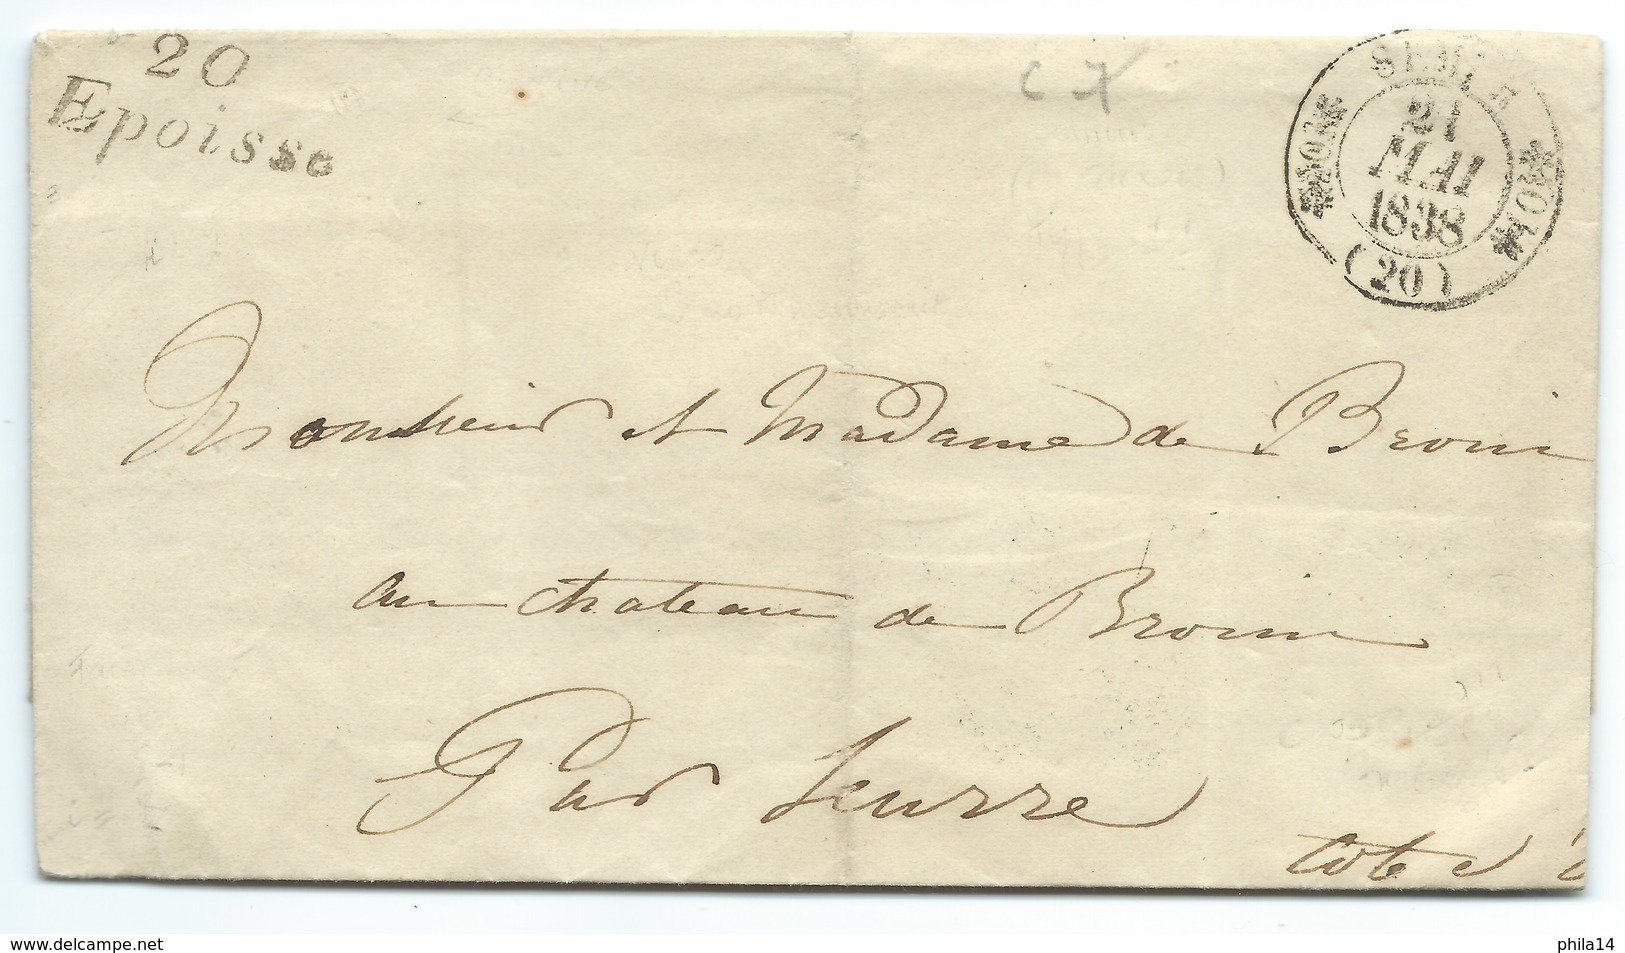 20
Epoisse
SEMUR
21
MAI
1838
(20)
Monsieur et Madame de Broin
au chateau de Broin
Par Seurre
Cote d'
www.delcampe.net
phila14